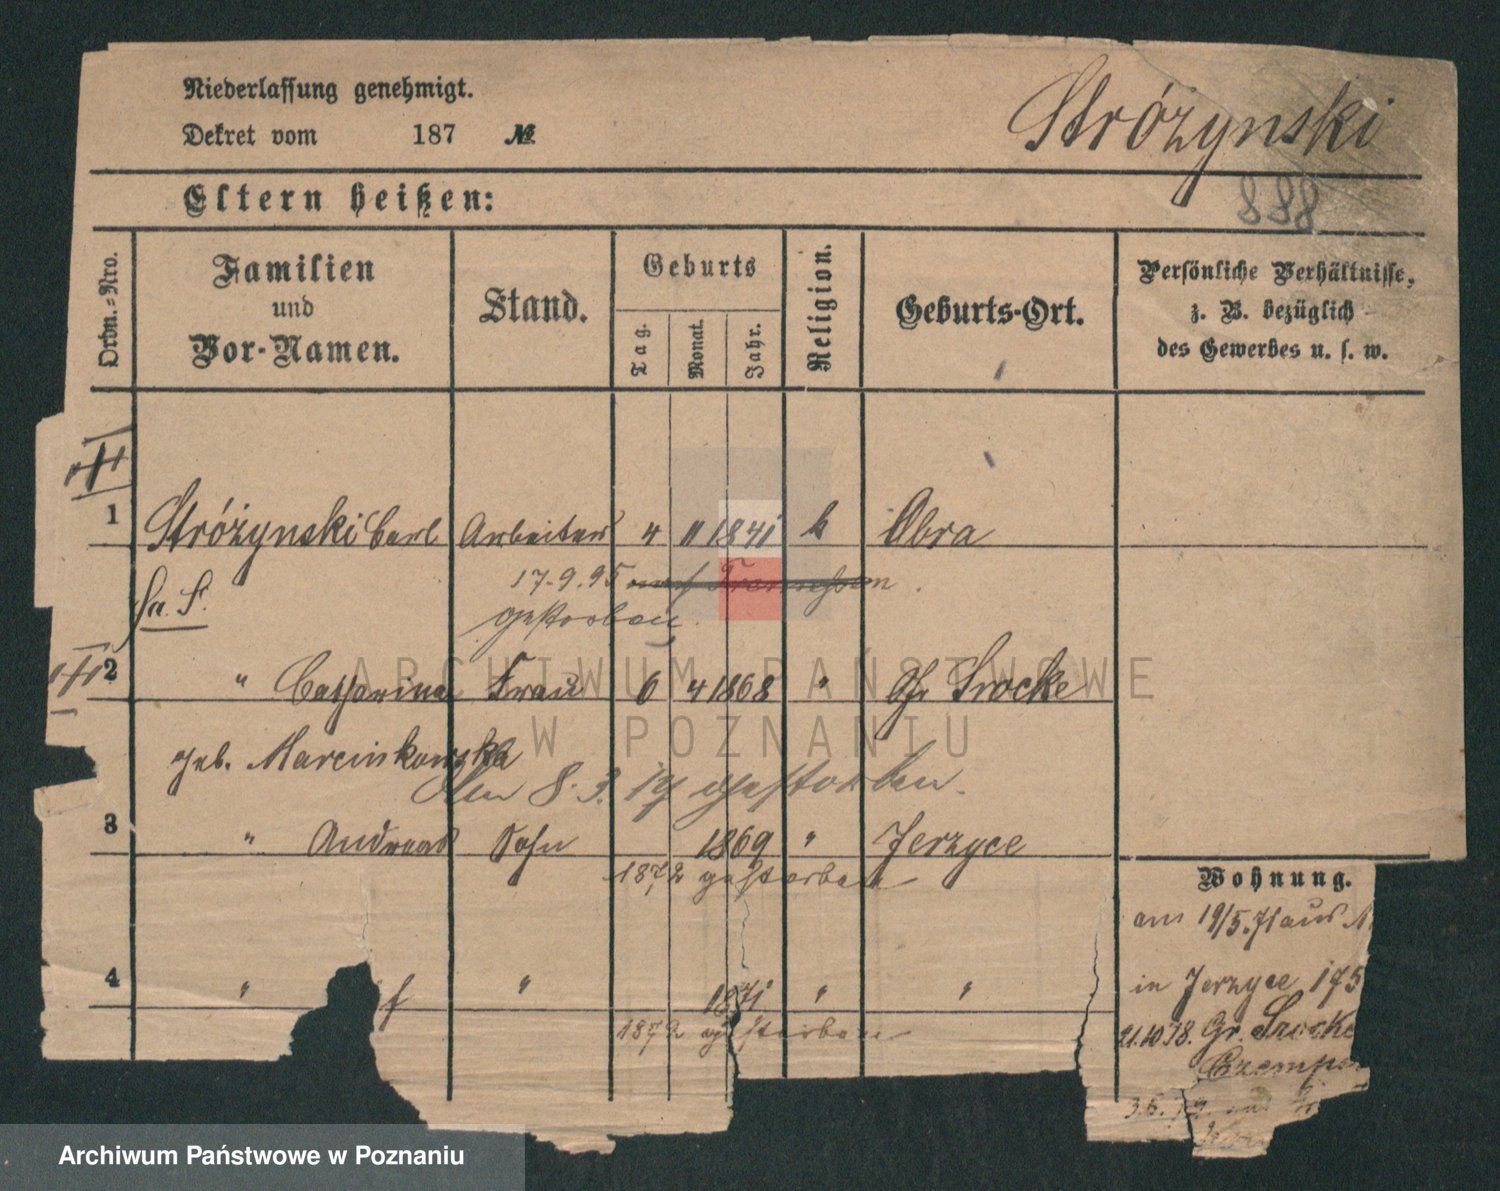 Niederlassung genehmigt.
Dekret vom 187 №
Stróżynski
888
Eltern heißen:
Ordn.-Nro.
Familien
und
Vor-Namen.
Stand.
Geburts
Tag.
Monat.
Jahr.
Religion.
Geburts-Ort.
Persönliche Verhältnisse,
z. B. bezüglich
des Gewerbes u. s. w.
1 Stróżynski Carl Arbeiter 4 11 1841 k Obra
17.9.95
gestorben
2 " Catharina Frau 6 4 1868 " Gr Srocke
geb. Marcinkowska
den 8.3.14 gestorben.
3 " Andreas Sohn 1869 " Jerzyce
1872 gestorben
4 " f " 1871 " "
1872 gestorben
Wohnung.
am 19/5.71 aus
in Jerzyce 175
21.10 78. Gr. Srocke
Czempin
3.6.79.
ARCHIWUM PAŃSTWOWE
W POZNANIU
Archiwum Państwowe w Poznaniu